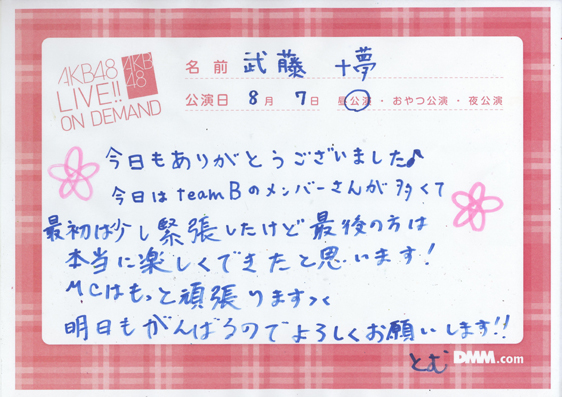 AKB48
LIVE!!
ON DEMAND
AKB
48
名前 武藤 十夢
公演日 8月 7日 昼公演・おやつ公演・夜公演
今日もありがとうございました♪
今日はteamBのメンバーさんが多くて
最初は少し緊張したけど最後の方は
本当に楽しくできたと思います!
MCはもっと頑張ります
明日もがんばるのでよろしくお願いします!!
とむ
DMM.com